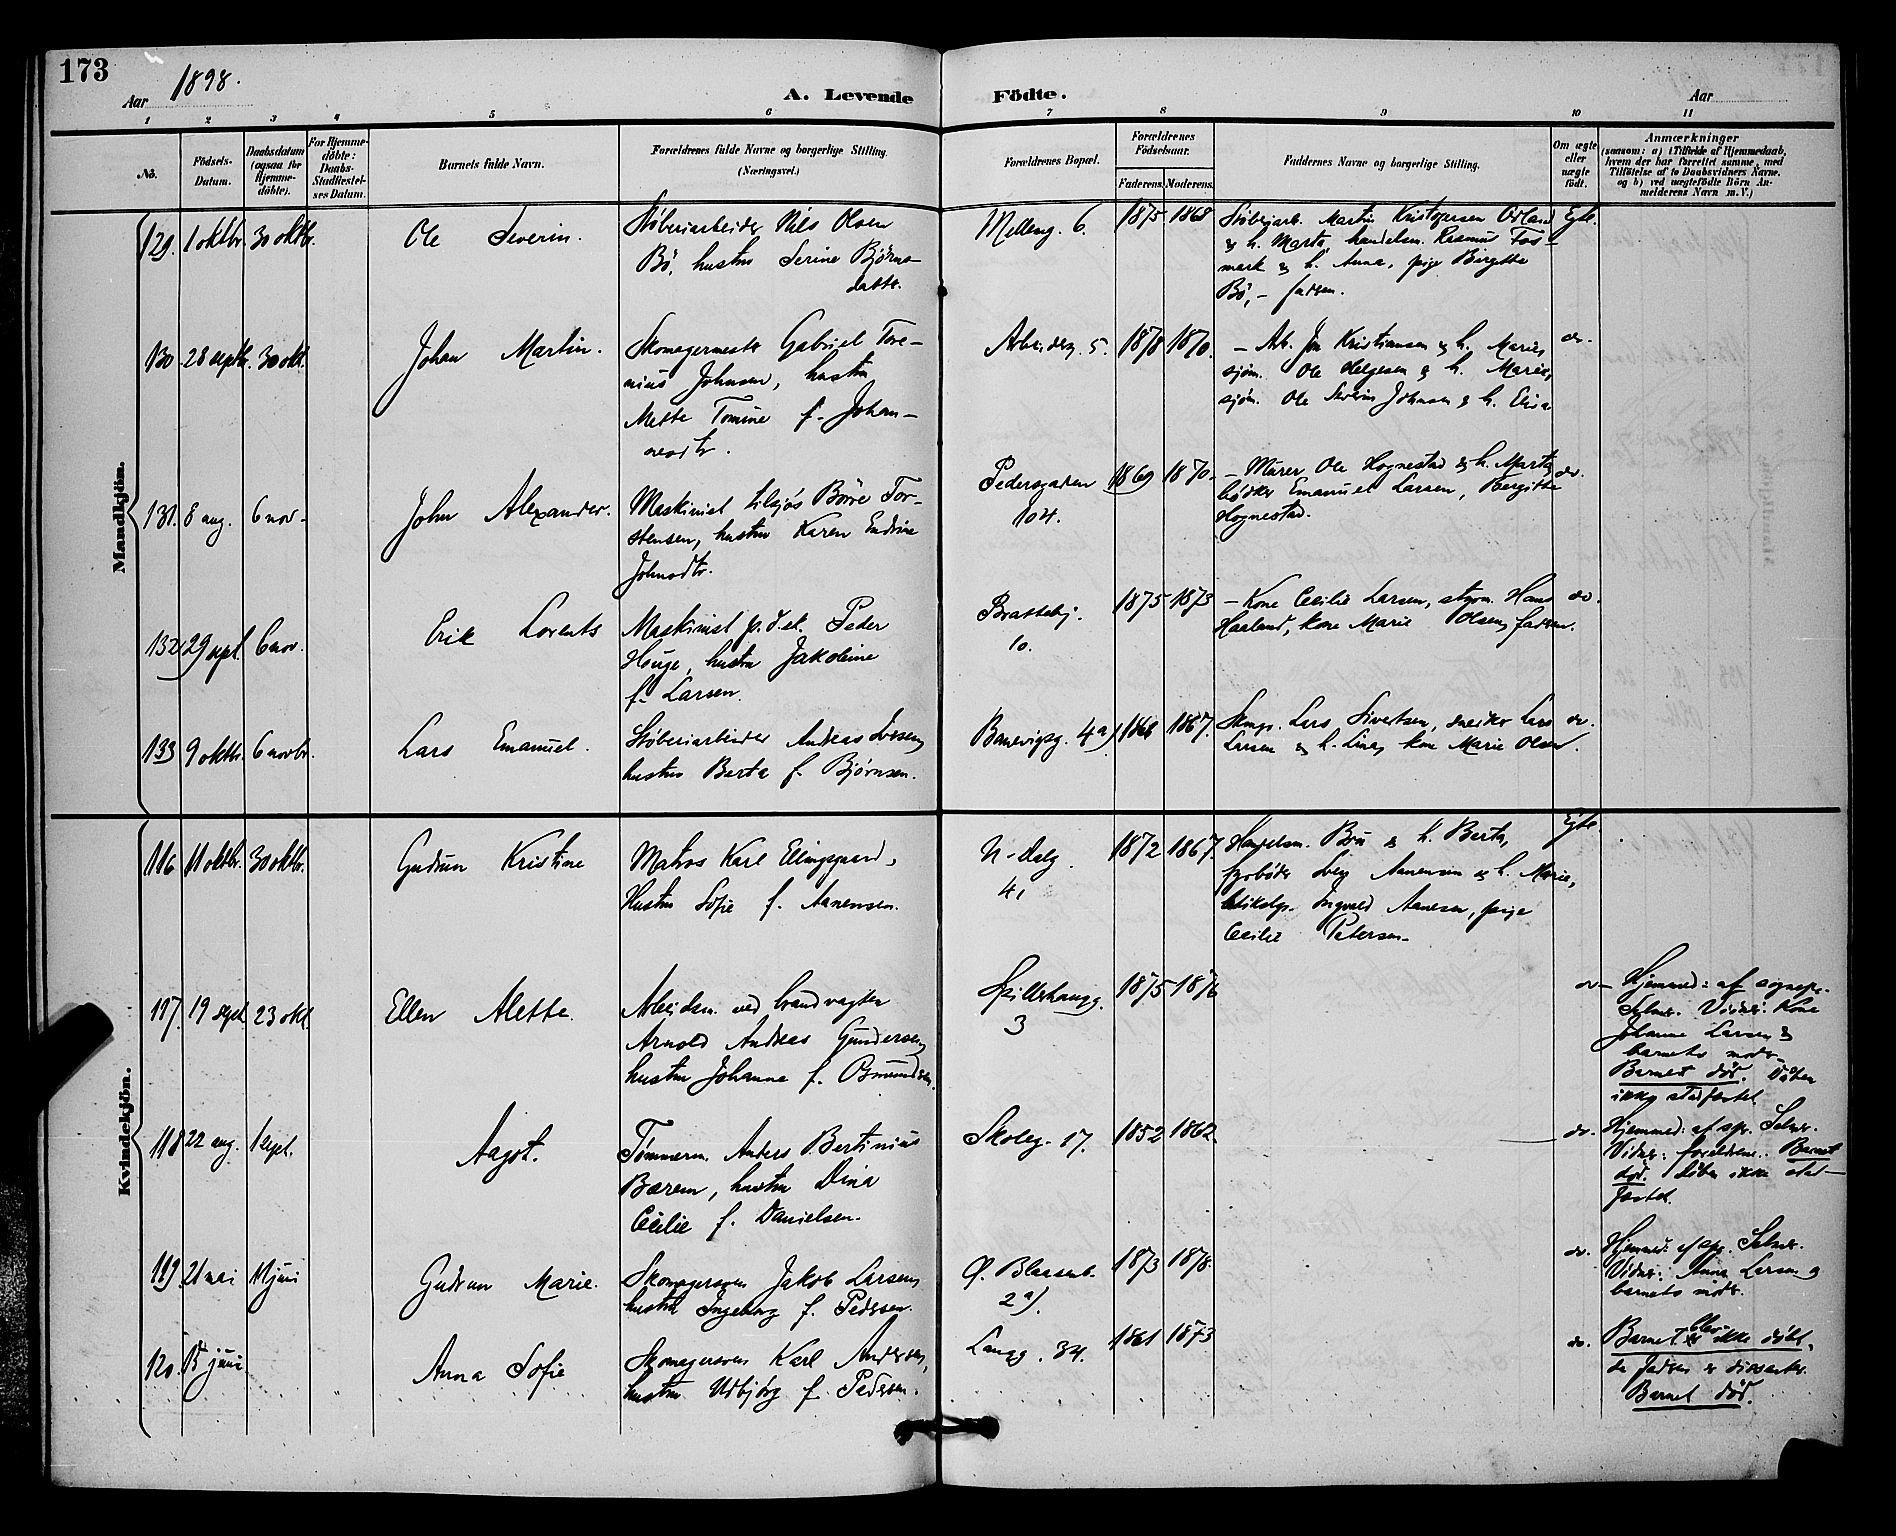 173
Aar 1898.
A. Levende Födte.
Aar
1 2 3 4 5 6 7 8 9 10 11
No.
Födsels-Datum.
Daabsdatum (ogsaa for Hjemme-döbte).
For Hjemme-döbte: Daabs-Stadfæstel-ses Datum.
Barnets fulde Navn.
Forældrenes fulde Navne og borgerlige Stilling. (Næringsvei.)
Forældrenes Bopæl.
Forældrenes Födselsaar.
Faderens. Moderens.
Faddernes Navne og borgerlige Stilling.
Om ægte eller uægte födt.
Anmærkninger
(saasom: a) i Tilfælde af Hjemmedaab, hvem der har forrettet samme, med Tilföielse af to Daabsvidners Navne, og b) ved uægtefödte Börn An-melderens Navn m. V.)
Mandkjön.
129. 1 oktbr. 30 oktbr. Ole Severin.
Støberiarbeider Nils Olsen
Bö, hustru Serine Bjørns-
datter.
Melleng. 6. 1875 1868
Støberiarb. Martin Kristofersen
& h. Marta, handelsm. Rasmus Fos-
mark & h. Anna, pige Birgitte
Bö, - faderen.
Egte.
130 28 septbr. 30 okt. Johan Martin.
Skomagermester Gabriel Tore-
nius Johnsen, hustru
Mette Tomine f. Johan-
nesdtr.
Arbeiderg. 5. 1878 1870.
- Arb. Jon Kristiansen & h. Marie,
sjøm. Ole Helgesen & h. Marie,
sjøm. Ole Severin Johnsen & h.
do.
131. 8 aug. 6 nov. John Alexander.
Maskinist tilsjøs Börre Tor-
stensen, hustru Karen Endrine
Johnsdtr.
Pedersgaden 104. 1869 1870.
- Murer Ole Hognestad & h. Marta,
bödker Emanuel Larsen, Bergitte
Hognestad.
do.
132 29 sept. 6 nov. Erik Lorents
Maskinist p. d. sk. Peder
Houge, hustru Jakobine
f. Larsen.
Brattebj. 10. 1875 1873
- Kone Cecilie Larsen, styrm. Hans
Haaland, kone Marie Olsen, faderen.
do.
133 9 oktbr. 6 novbr. Lars Emanuel.
Støberiarbeider Andreas
hustru Berta f. Bjørnsen.
Banevigsg. 4a) 1868 1867.
Skmgr. Lars Sivertsen, snedker Lars
Larsen & h. Line, kone Marie Olsen.
do.
Kvindekjön.
116 11 oktbr. 30 oktbr. Gudrun Kristine
Matros Karl Ellingsgaard,
Hustru Sofie f. Aanensen.
N. Dalg. 41 1872 1867.
Handelsm. & h. Berta,
fyrbøder Aanensen & h. Marie,
Ingvald Aanesen, pige
Cecilie Petersen.
Egte.
117. 19 sept. 23 okt. Ellen Alette.
Arbeidsm. ved brandvagten
Arnold Andreas Gundersen,
hustru Johanne f.
3 1875 1876
do.
Hjemmed: af sognepr.
Selmer. Vidner: Kone
Johanne Larsen &
barnets moder.
Barnet död. Daaben
ikke stadfæstet
118 22 aug. 1 sept. Aagot.
Tømmerm. Anders Bertinius
Bærem, hustru Dina
Cecilie f. Danielsen.
Skoleg. 17. 1852 1862.
do.
Hjemmed: af spr. Selmer.
Vidner: forældrene. Barnet
död. Daaben ikke stad-
fæstet.
119. 21 mai 11 juni Gudrun Marie.
Skomagersven Jakob Larsen,
hustru Ingeborg f. Pedersen.
Ø. Blaasenb. 2a). 1873 1878.
do.
Hjemmed: af spr. Selmer.
Vidner: Anna Larsen &
barnets moder.
120. 15 juni Anna Sofie
Skomagersven Karl Andersen,
hustru Udbjörg f. Pedersen.
Langg. 34. 1861 1873
do.
Barnet blev ikke döbt,
da faderen er dissenter.
Barnet död.